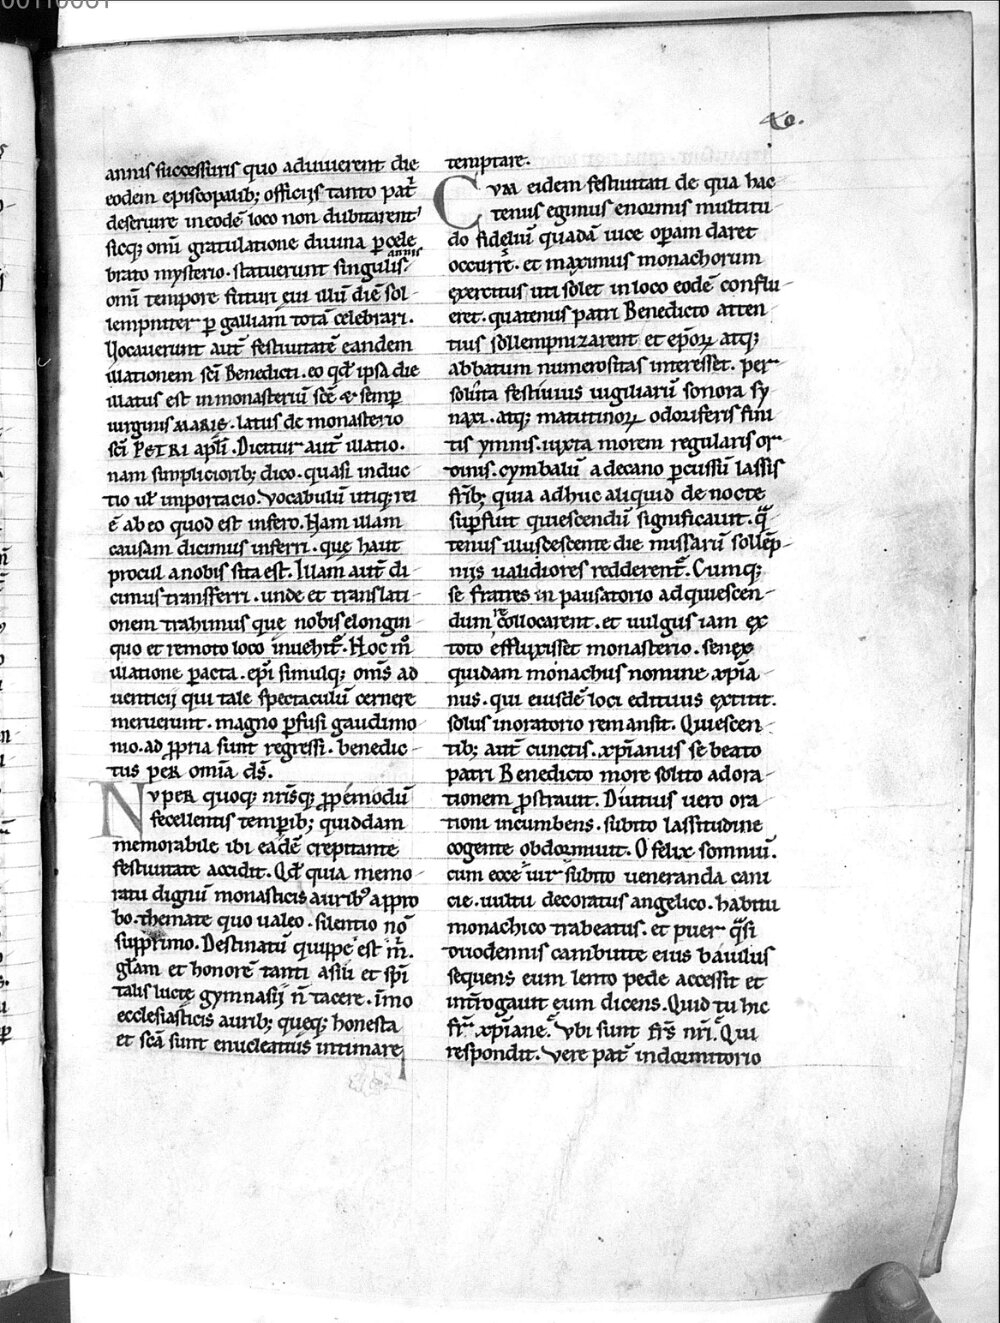 annis successuris quo adviverent die
eodem episcopalib; officijs tanto pat͛
deservire in eodē loco non dubitarent
sicq; omī gratulatione divina ꝑcele
brato mysterio. statuerunt singulis annis
omī tempore futuri evi illū diē sol
lempniter ꝑ galliam totā celebrari.
Vocaverunt aut̄ festivitatē eandem
illationem sc̄i Benedicti. eo qd̄ ipsa die
illatus est in monasteriū sc̄e & semꝑ
virginis MARIE. latus de monasterio
sc̄i PETRI apl̄i. Dicitur aut̄ illatio.
nam simplicioribꝫ dico. quasi induc
tio ul̄ importacio. Vocabulū utiq; rei
ē ab eo quod est infero. Nam illam
causam dicimus inferri. que haut
procul a nobis sita est. Illam aut̄ di
cimus transferri. unde et translati
onem trahimus que nobis elongin
quo et remoto loco invehit͛. Hoc m̊
illatione pacta. ep̄i simulq; om̄s ad
venticij qui tale spectaculū cernere
meruerunt. magno ꝑfusi gaudimo
nio. ad ꝓpria sunt regressi. benedic
tus PER omīa dſ̄.
NVPER quoq; nr̄isq; ꝓpemodū
fecellentis temꝑib; quiddam
memorabile ibi eadē crepitante
festivitate accidit. Qd̄ quia memo
ratu dignū monasticis auribꝫ appro
bo. themate quo valeo. silentio nō
supprimo. Destinatū quippe est m̄.
glām et honorē tanti asili et sp̄i
talis lucte gymnasij n̄ tacere. īmo
ecclesiasticis aurib; queq; honesta
et sc̄a sunt enucleatius intimare
temptare.
CVM eidem festivitati de qua hac
tenus egimus enormis multitu
do fideliū quadā vice oꝑam daret
occurrͤ. et maximus monachorum
exercitus uti solet in loco eodē conflu
eret. quatenus patri Benedicto atten
tius sollempnizarent et ep̄oꝝ atq;
abbatum numerositas interesset. per
solita festivius vigiliarū sonora sy
naxi. atq; matutinoꝝ odoriferis fini
tis ymnis. iuxta morem regularis or
dinis. cymbalū a decano ꝑcussū lassis
fr̄ib; quia adhuc aliquid de nocte
suꝑfuit quiescendū significavit. qͣ
tenus illuscescente die missarū sollēp
niis validiores redderent͛. Cumq;
se fratres in pausatorio adquiescen
dum recollocarent. et vulgus iam ex
toto effluxisset monasterio. senex
quidam monachus nomine xp̄ia
nus. qui eiusdē loci edituus extitit.
solus in oratorio remansit. Quiescen
tib; aut̄ cunctis. xp̄ianus se beato
patri Benedicto more solito adora
tionem ꝓstravit. Diutius vero ora
tioni incumbens. subito lassitudine
cogente obdormivit. O felix somniū.
cum ecce vir subito veneranda cani
cie. vultu decoratus angelico. habitu
monachico trabeatus. et puer qͣsi
duodennis cambutte eius baiulus
sequens eum lento pede accessit et
int̄rogavit eum dicens. Quid tu hic
fr̄ xp̄iane. Vbi sunt fr̄s nr̄i. Qui
respondit. Vere pat͛ in dormitorio